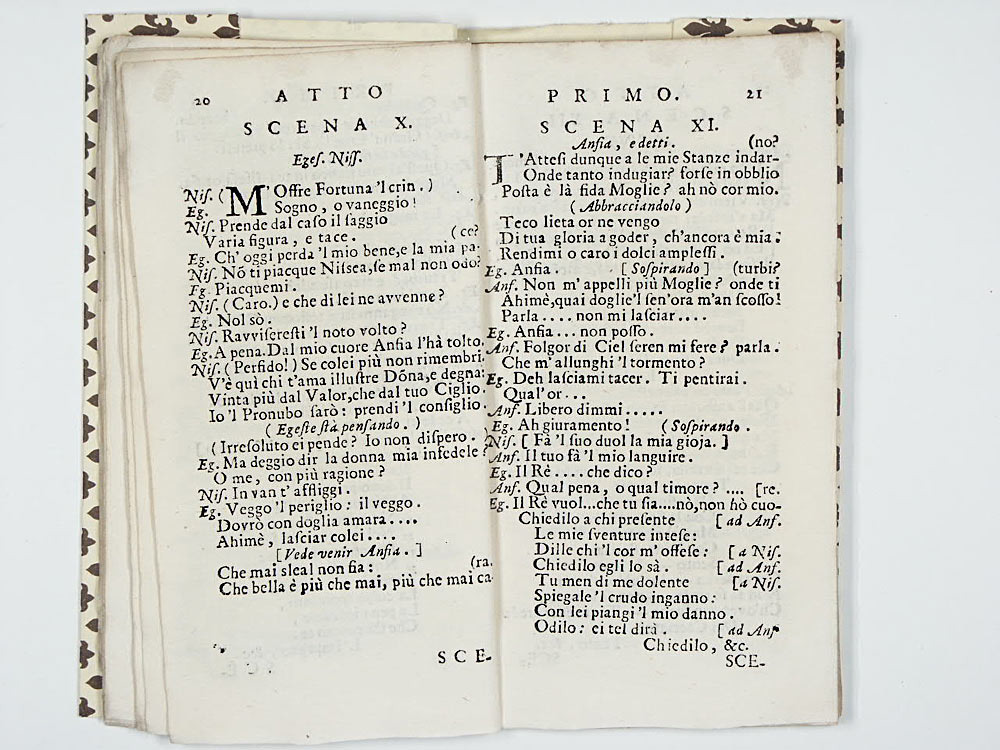 20 ATTO
SCENA X.
Eges. Niss.
Nis. ( M'Offre Fortuna 'l crin. )
Eg. Sogno, o vaneggio!
Nis. Prende dal caso il saggio
Varia figura, e tace. (ce?
Eg. Ch' oggi perda 'l mio bene,e la mia pa-
Nis. Nõ ti piacque Nissea,se mal non odo?
Eg. Piacquemi.
Nis. (Caro.) e che di lei ne avvenne?
Eg. Nol sò.
Nis. Ravviseresti 'l noto volto?
Eg. A pena.Dal mio cuore Ansia l'hà tolto.
Nis. (Perfido!) Se colei più non rimembri.
V'è quì chi t'ama illustre Dõna,e degna:
Vinta più dal Valor,che dal tuo Ciglio.
Io 'l Pronubo sarò: prendi 'l consiglio.
( Egeste stà pensando. )
(Irresoluto ei pende? Io non dispero.
Eg. Ma deggio dir la donna mia infedele?
O me, con più ragione?
Nis. In van t' affliggi.
Eg. Veggo 'l periglio: il veggo.
Dovrò con doglia amara....
Ahimè, lasciar colei....
[Vede venir Ansia. ]
Che mai sleal non fia: (ra.
Che bella è più che mai, più che mai ca-
SCE-
PRIMO. 21
SCENA XI.
Ansia, e detti. (no?
T'Attesi dunque a le mie Stanze indar-
Onde tanto indugiar? forse in obblio
Posta è là fida Moglie? ah nò cor mio.
(Abbracciandolo)
Teco lieta or ne vengo
Di tua gloria a goder, ch'ancora è mia:
Rendimi o caro i dolci amplessi.
Eg. Ansia. [Sospirando] (turbi?
Ans. Non m' appelli più Moglie? onde ti
Ahimè,quai doglie'l sen'ora m'an scosso!
Parla.... non mi lasciar....
Eg. Ansia... non posso.
Ans. Folgor di Ciel seren mi fere? parla.
Che m'allunghi 'l tormento?
Eg. Deh lasciami tacer. Ti pentirai.
Qual'or...
Ans. Libero dimmi.....
Eg. Ah giuramento! (Sospirando.
Nis. [Fà 'l suo duol la mia gioja.]
Ans. Il tuo fà 'l mio languire.
Eg. Il Rè....che dico?
Ans. Qual pena, o qual timore? .... [re.
Eg. Il Rè vuol...che tu sia....nò,non hò cuo-
Chiedilo a chi presente [ad Ans.
Le mie sventure intese:
Dille chi 'l cor m' offese: [a Nis.
Chiedilo egli lo sà. [ad Ans.
Tu men di me dolente [a Nis.
Spiegale 'l crudo inganno:
Con lei piangi 'l mio danno.
Odilo: ei tel dirà. [ad Ans
Chiedilo, &c.
SCE-